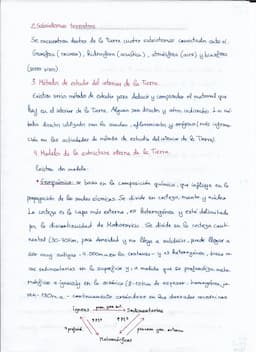 2. Subsistemas terrestres
Se encuentran dentro de la Tierra cuatro subsistemas conectados entre sí.
Geosfera (rocosa), hidrosfera (acuática), atmósfera (aire) y biosfera
(seres vivos).
3. Métodos de estudio del interior de la Tierra.
Existen varios métodos de estudio para deducir y comprender el material que
hay en el interior de la Tierra. Algunos son directos y otros indirectos. Los mé-
todos directos utilizados son los sondeos, afloramientos y xenolitos (más informa-
ción en las actividades de métodos de estudio del interior de la Tierra).
4. Modelos de la estructura interna de la Tierra.
Existen dos modelos:
• Geoquímico: se basa en la composición química, que influye en la
propagación de las ondas sísmicas. Se divide en corteza, manto y núcleo.
La corteza es la capa más externa, es heterogénea y está delimitada
por la discontinuidad de Mohorovicic. Se divide en la corteza conti-
nental (30-70km, poca densidad y no llega a subducir, puede llegar a
ser muy antigua - 4.000 m.a en los cratones - y es heterogénea, tiene ro-
cas sedimentarias en la superficie y a medida que se profundiza, meta-
mórficas e ígneas) y en la oceánica (8-10km de espesor, homogénea, jo-
ven - 180m.a - continuamente creándose en las dorsales oceánicas
Ígneas proc. geo. ext. Sedimentarias
Metamórficas